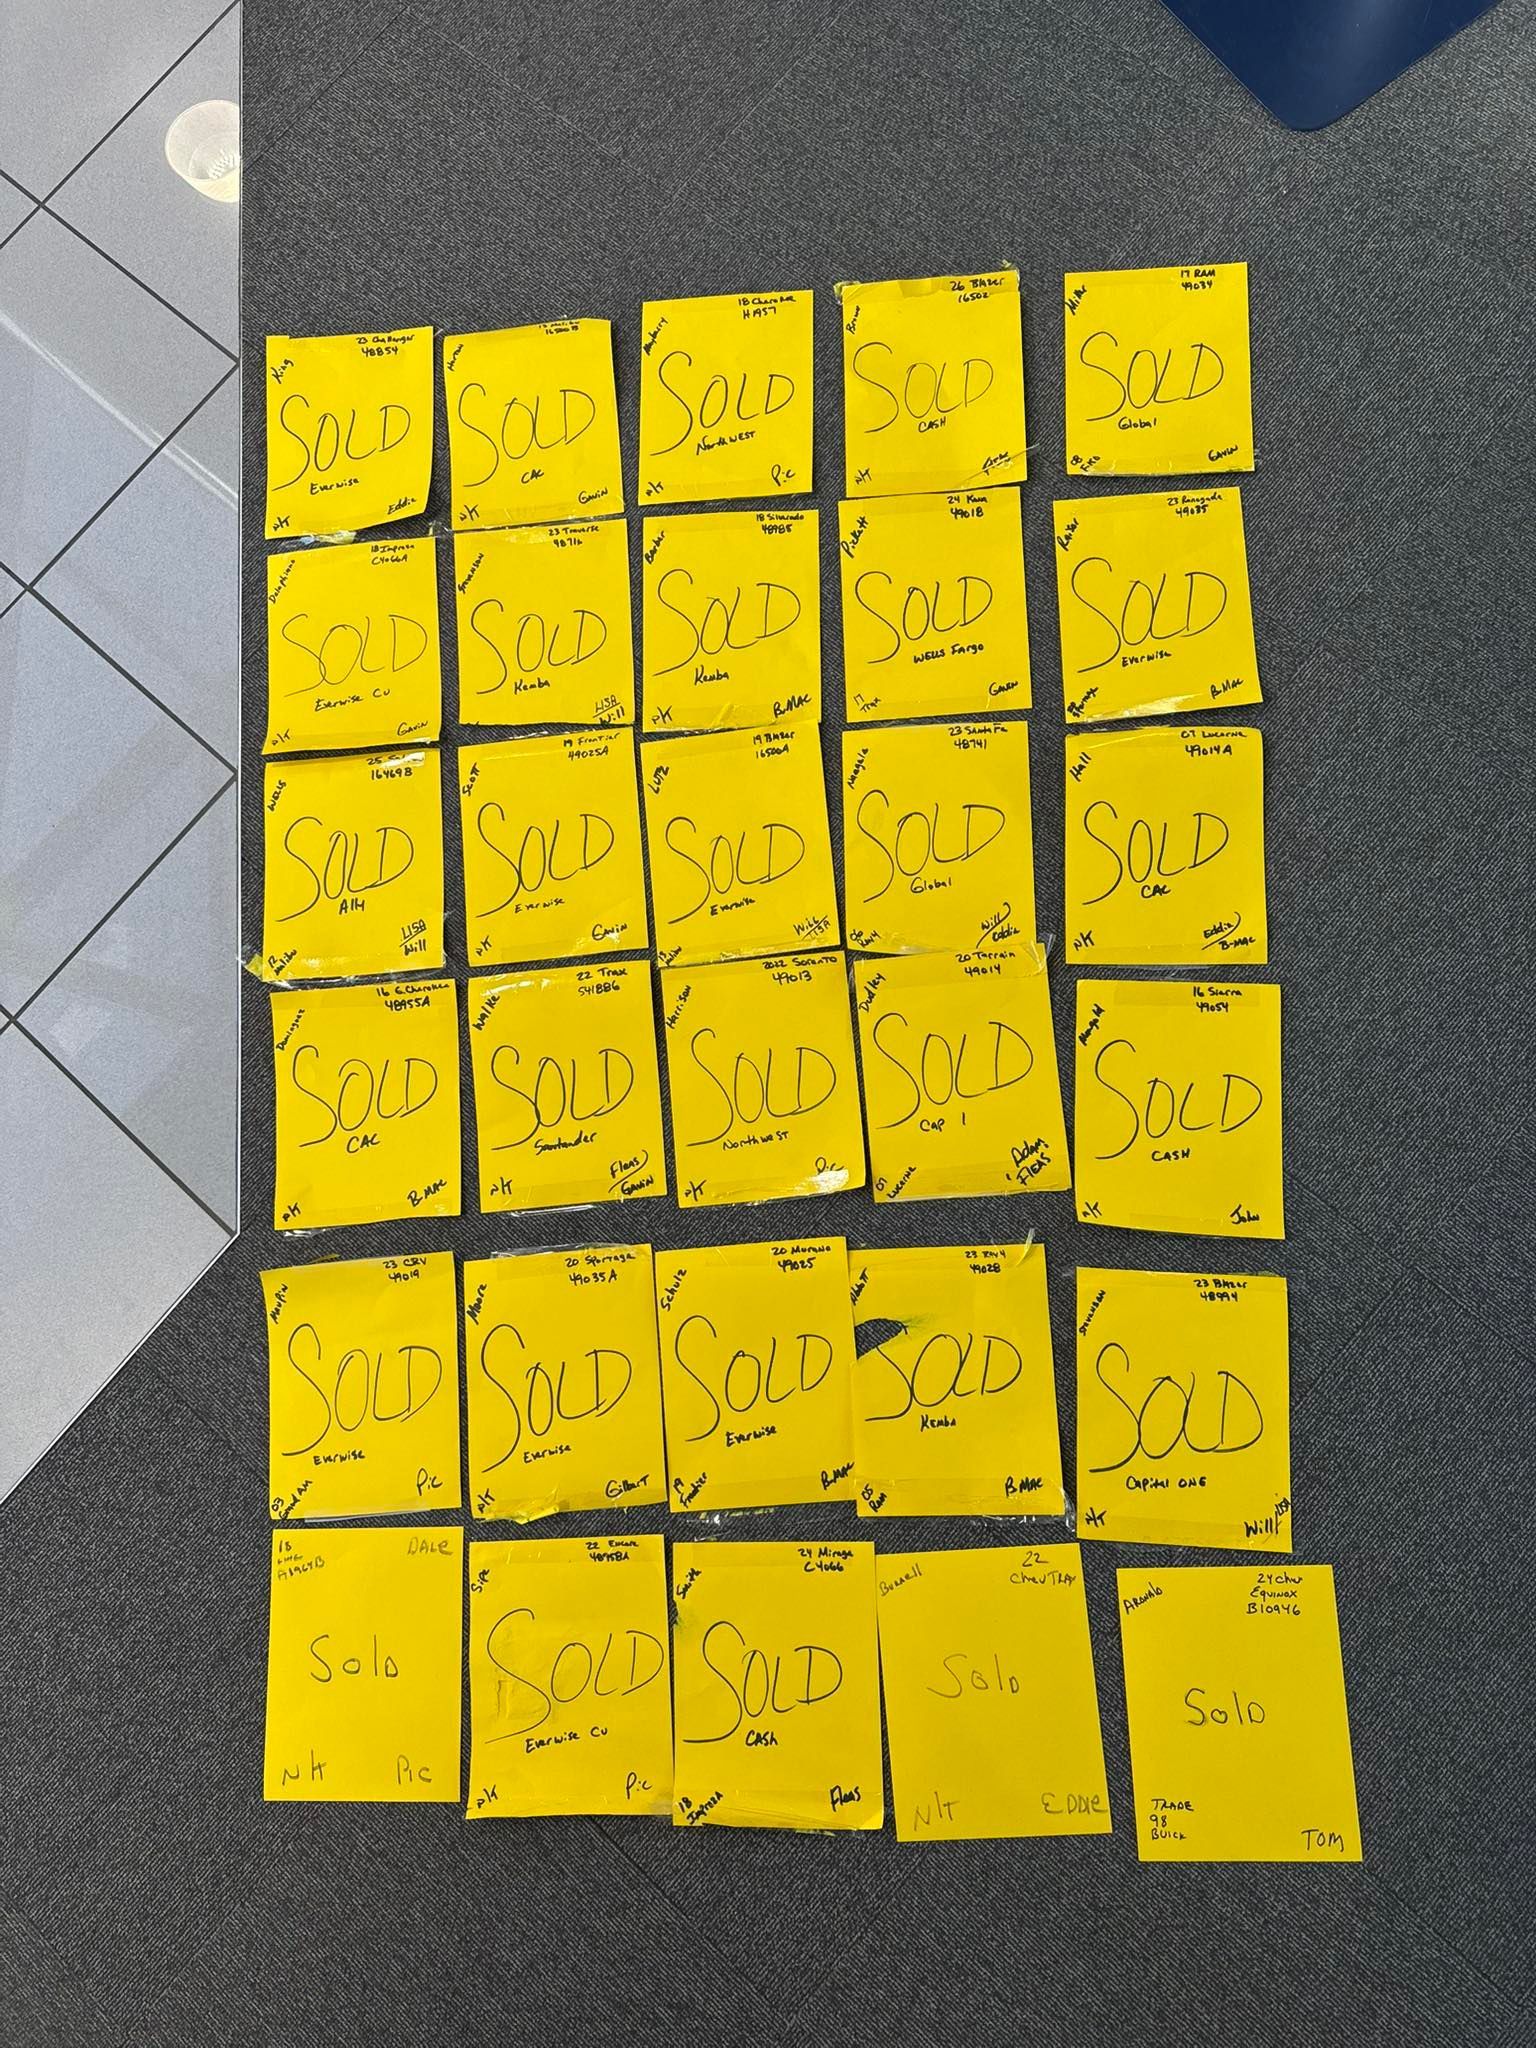 King
23 Challenger
48854
SOLD
Everwise
N/T
Eddie
Horton
16500B
SOLD
CAC
N/T
GAVIN
Mayberry
18 Cherokee
H1957
SOLD
NorthWEST
N/T
Pic
Brown
26 Blazer
16502
SOLD
CASH
N/T
Miller
17 RAM
49034
SOLD
Global
08
GAVIN
18 Impreza
C4066A
SOLD
Everwise CU
N/T
GAVIN
Stevenson
23 Traverse
SOLD
Kemba
LISA
Will
Barber
18 Silverado
48985
SOLD
Kemba
N/T
B-MAC
Pickett
24 Kona
49018
SOLD
WELLS Fargo
17
Trax
GAVIN
23 Renegade
49035
SOLD
Everwise
Sportage
B-MAC
WELLS
16469B
SOLD
Ally
12
Malibu
LISA
Will
SCOTT
19 Frontier
49025A
SOLD
Everwise
N/T
GAVIN
LUTZ
19 Blazer
16500A
SOLD
Everwise
13
Malibu
Will
LISA
23 SANTA Fe
48741
SOLD
Global
Will
Eddie
Hall
07 Lucerne
49014A
SOLD
CAC
N/T
Eddie
B-MAC
Dominguez
16 G. Cherokee
48955A
SOLD
CAC
N/T
B-MAC
Walke
22 Trax
541886
SOLD
Santander
N/T
Fleas
GAVIN
Harrison
2022 Sorento
49013
SOLD
NorthwEST
N/T
Pic
Dudley
20 Terrain
49014
SOLD
Cap 1
07
Lucerne
Adam
FLEAS
Mangold
16 Sierra
49054
SOLD
CASH
N/T
John
Maupin
23 CRV
49019
SOLD
Everwise
03
Grand AM
Pic
Moore
20 Sportage
49035A
SOLD
Everwise
N/T
Gilbert
Schulz
20 Murano
49025
SOLD
Everwise
19
Frontier
B-MAC
Abbott
23 Rav4
49028
SOLD
KEMBA
05
Ram
B-MAC
Stevenson
23 Blazer
48994
SOLD
Capital ONE
N/T
Will/LISA
18
DALE
Sold
N/T
Pic
Sipe
22 Encore
48958A
SOLD
Everwise CU
N/T
Pic
Smith
24 Mirage
C4066
SOLD
CASH
18
Impreza
Fleas
Burrell
22
Chev TRAX
Sold
N/T
EDDIE
ARONALD
24 Chev
EQUINOX
B10946
Sold
TRADE
98
BUICK
TOM